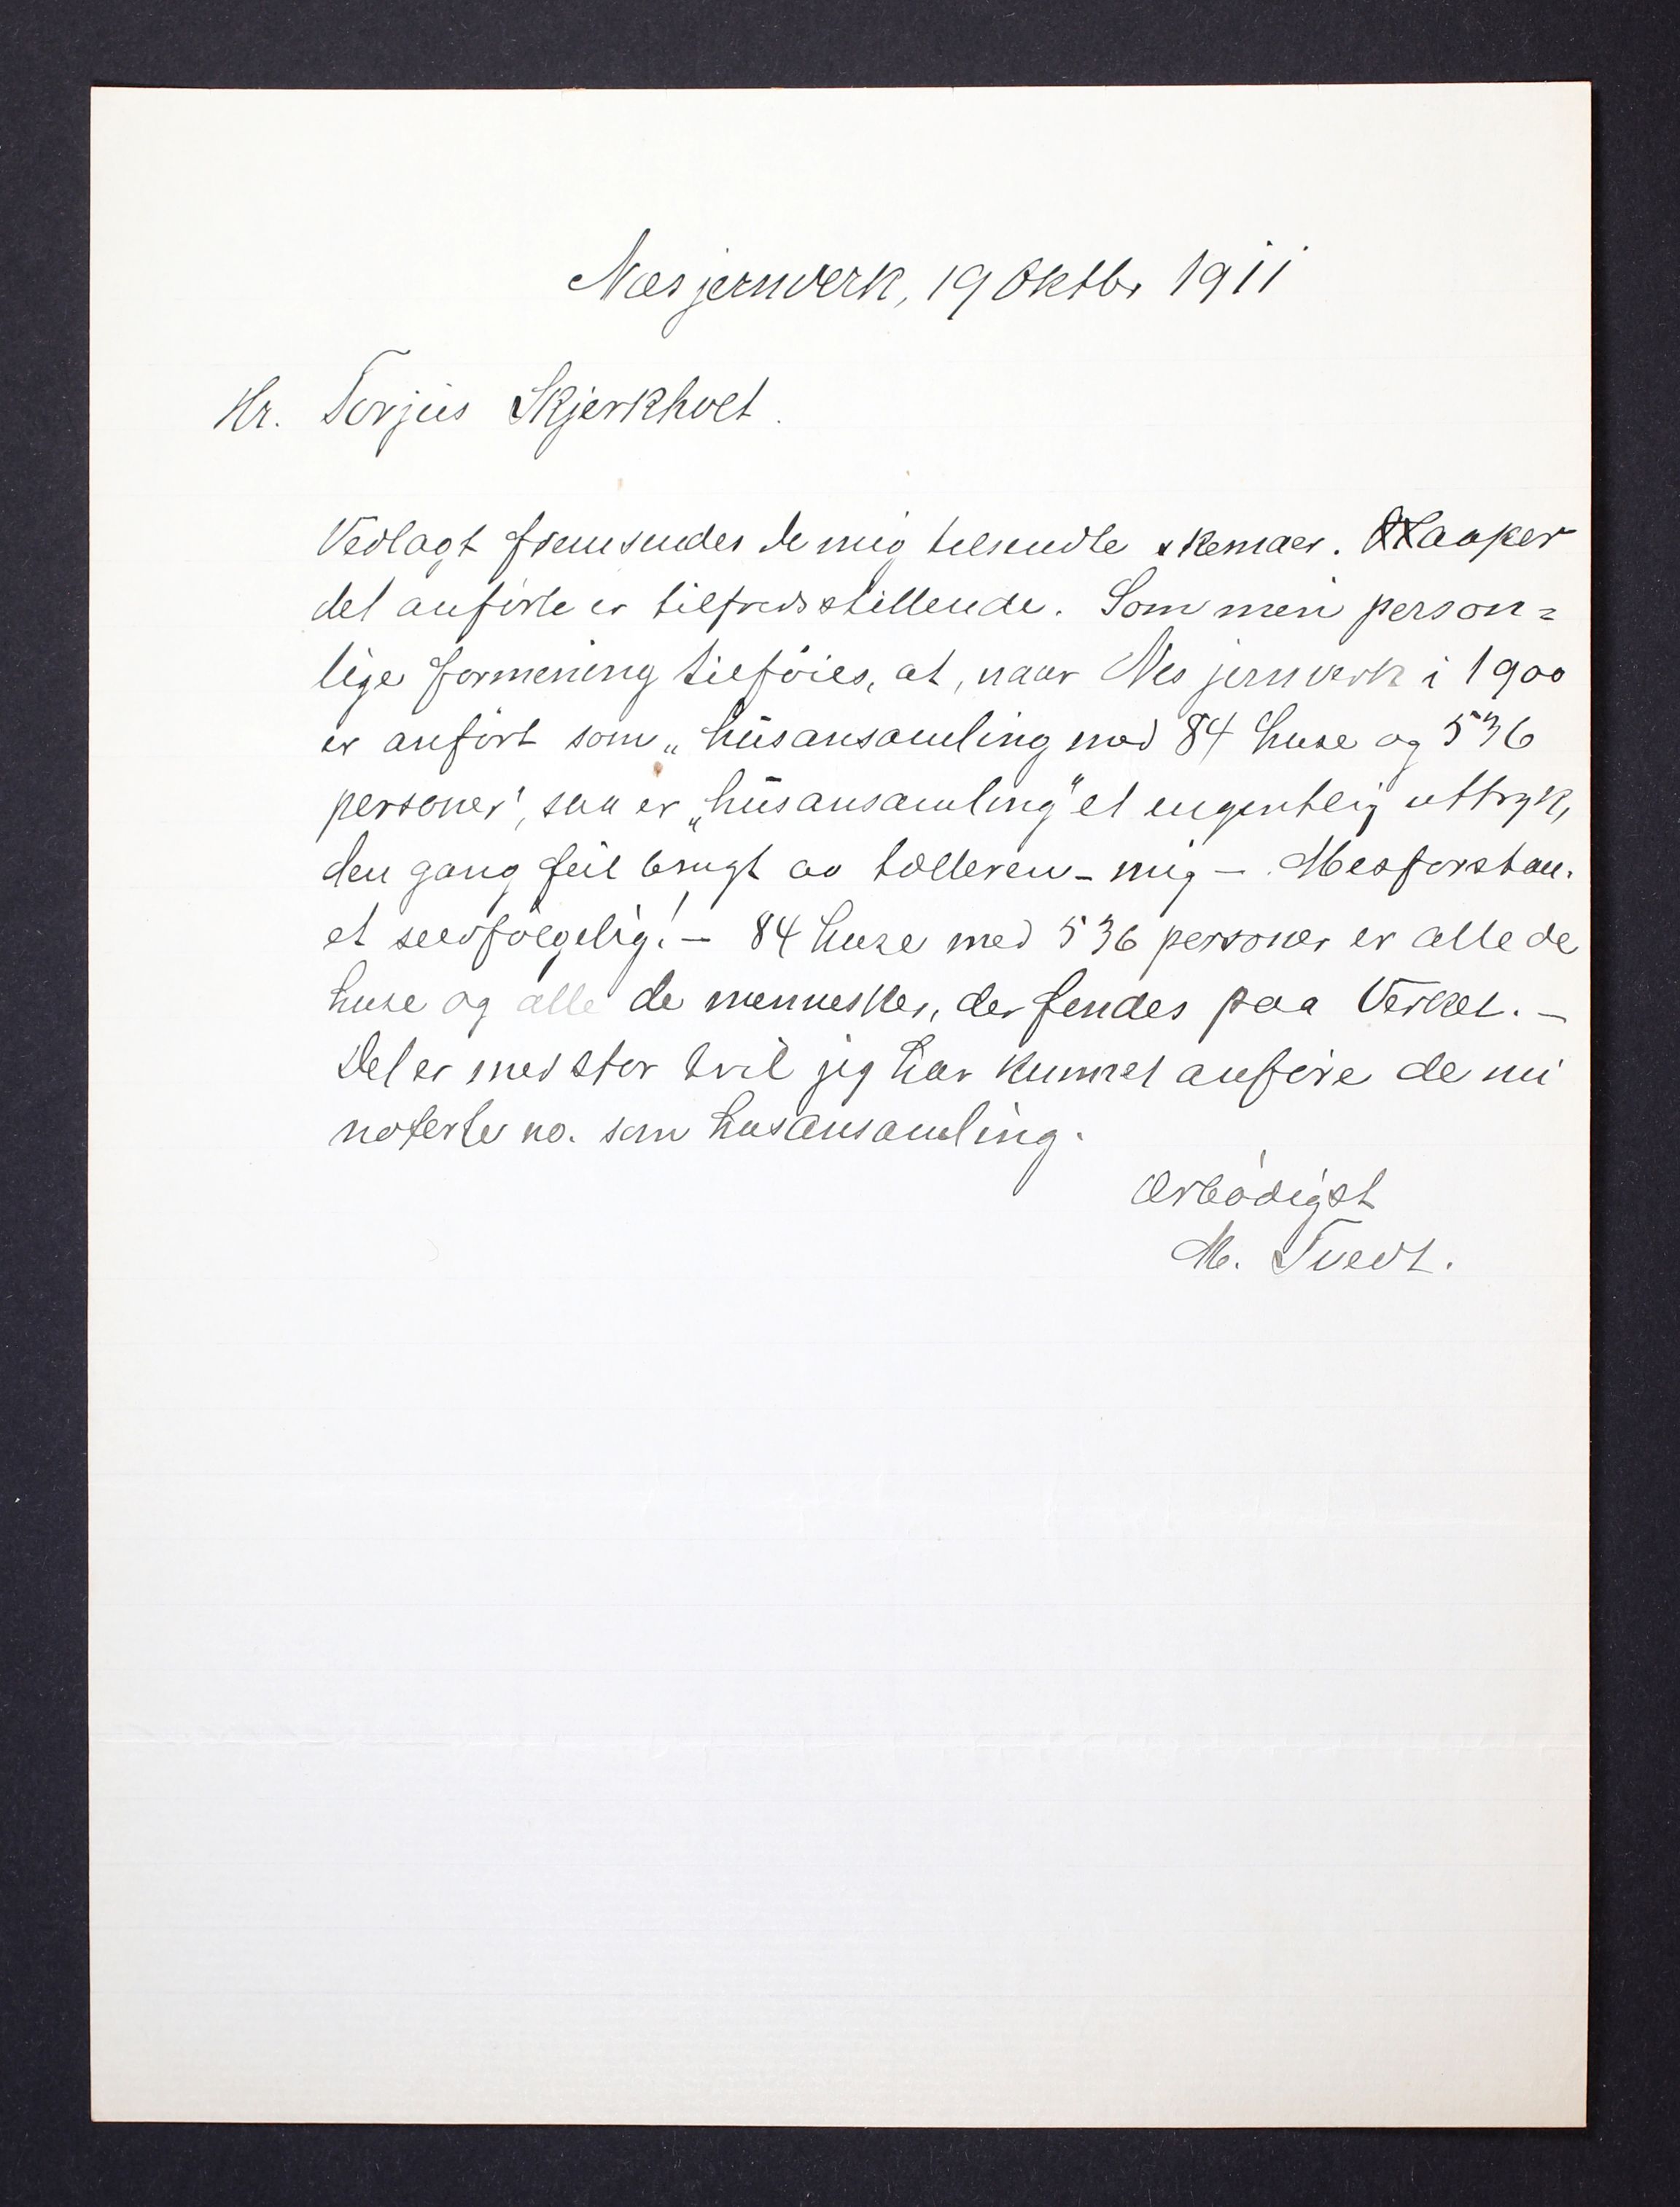 Næs jernverk, 19 Oktbr 1911
Hr. Torjus Skjerkholt.
Vedlagt fremsendes de mig tilsendte skemaer. Haaper
det anførte er tilfredsstillende. Som min person=
lige formening tilføies, at, naar Nes jernverk i 1900
er anført som „husansamling med 84 huse og 536
personer", saa er „husansamling" et uegentlig uttryk,
den gang feil brugt av tælleren – mig –. Misforstaa-
et selvfølgelig! – 84 huse med 536 personer er alle de
huse og alle de mennesker, der findes paa Verket. –
Det er med stor tvil jeg har kunnet anføre de nu
noterte no. som husansamling.
Ærbødigst
M. Tvedt.